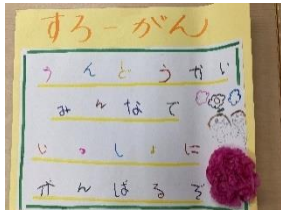 すろーがん
うんどうかい
みんなで
いっしょに
がんばるぞ